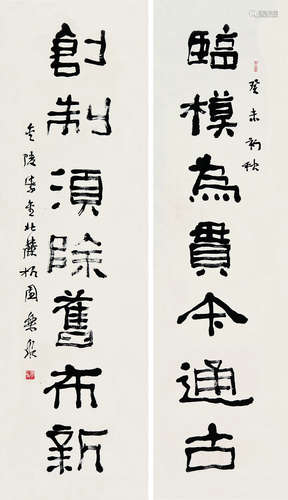 臨模為貫本通古
癸未初秋
創制須除舊布新
金陵紫金北麓園樂泉